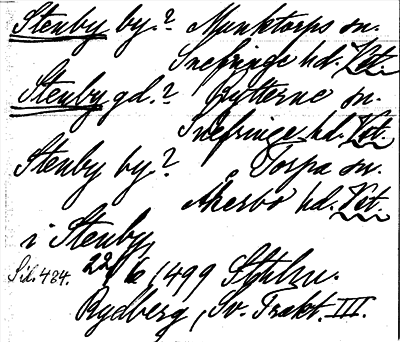 Stenby by.? Munktorps sn.
Snefringe hd. Vst.
Stenby gd.? Rytterne sn.
Snefringe hd. Vst.
Stenby by? Torpa sn.
Åkerbo hd. Vst.
i Stenby
Sil. 484. 22/6 1499 Sthlm.
Rydberg, Sv. Trakt. III.